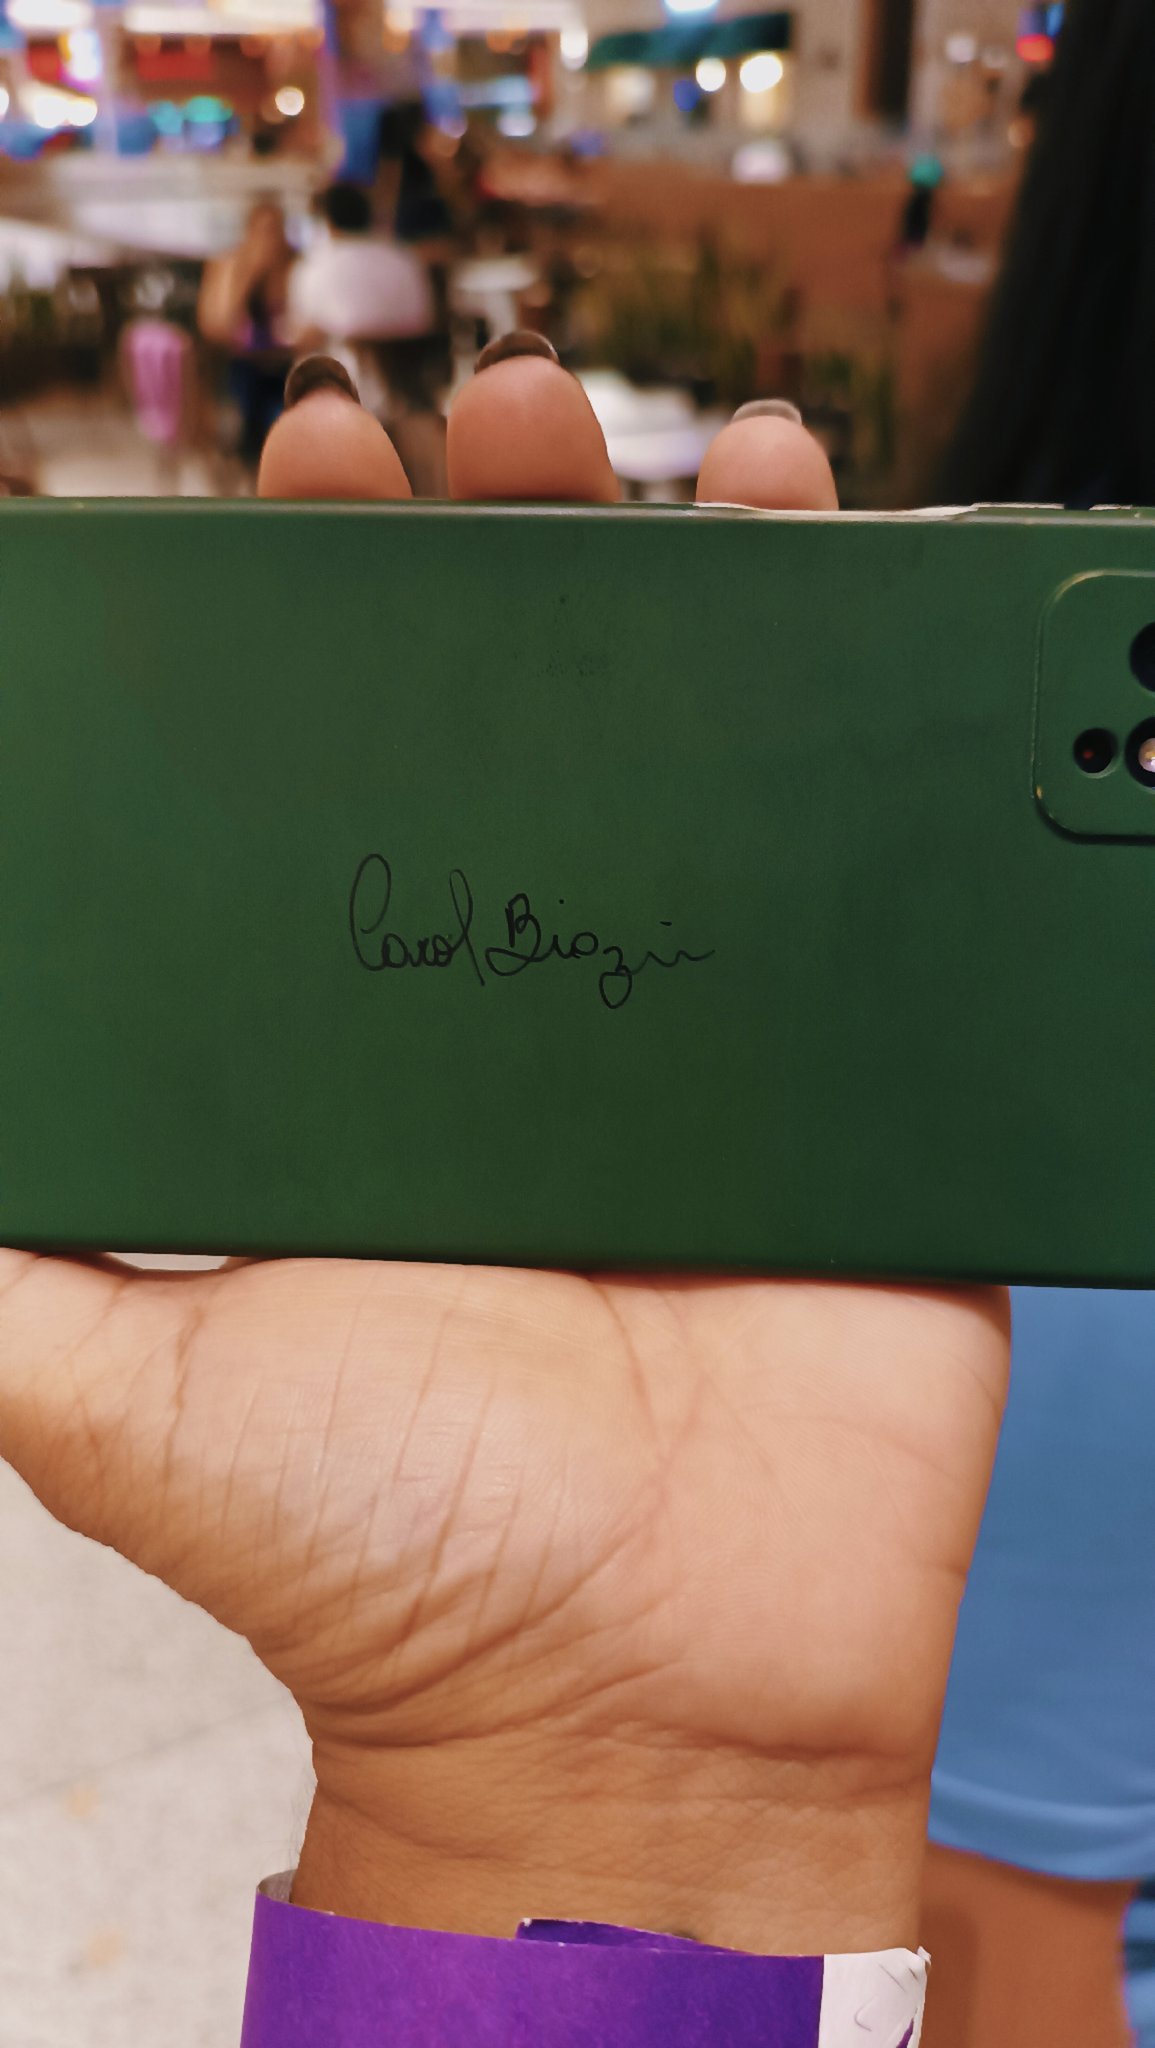 Carol Biazin